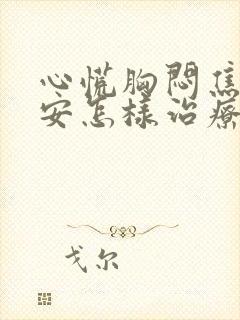 心慌胸闷焦
安怎样治疗
戈尔